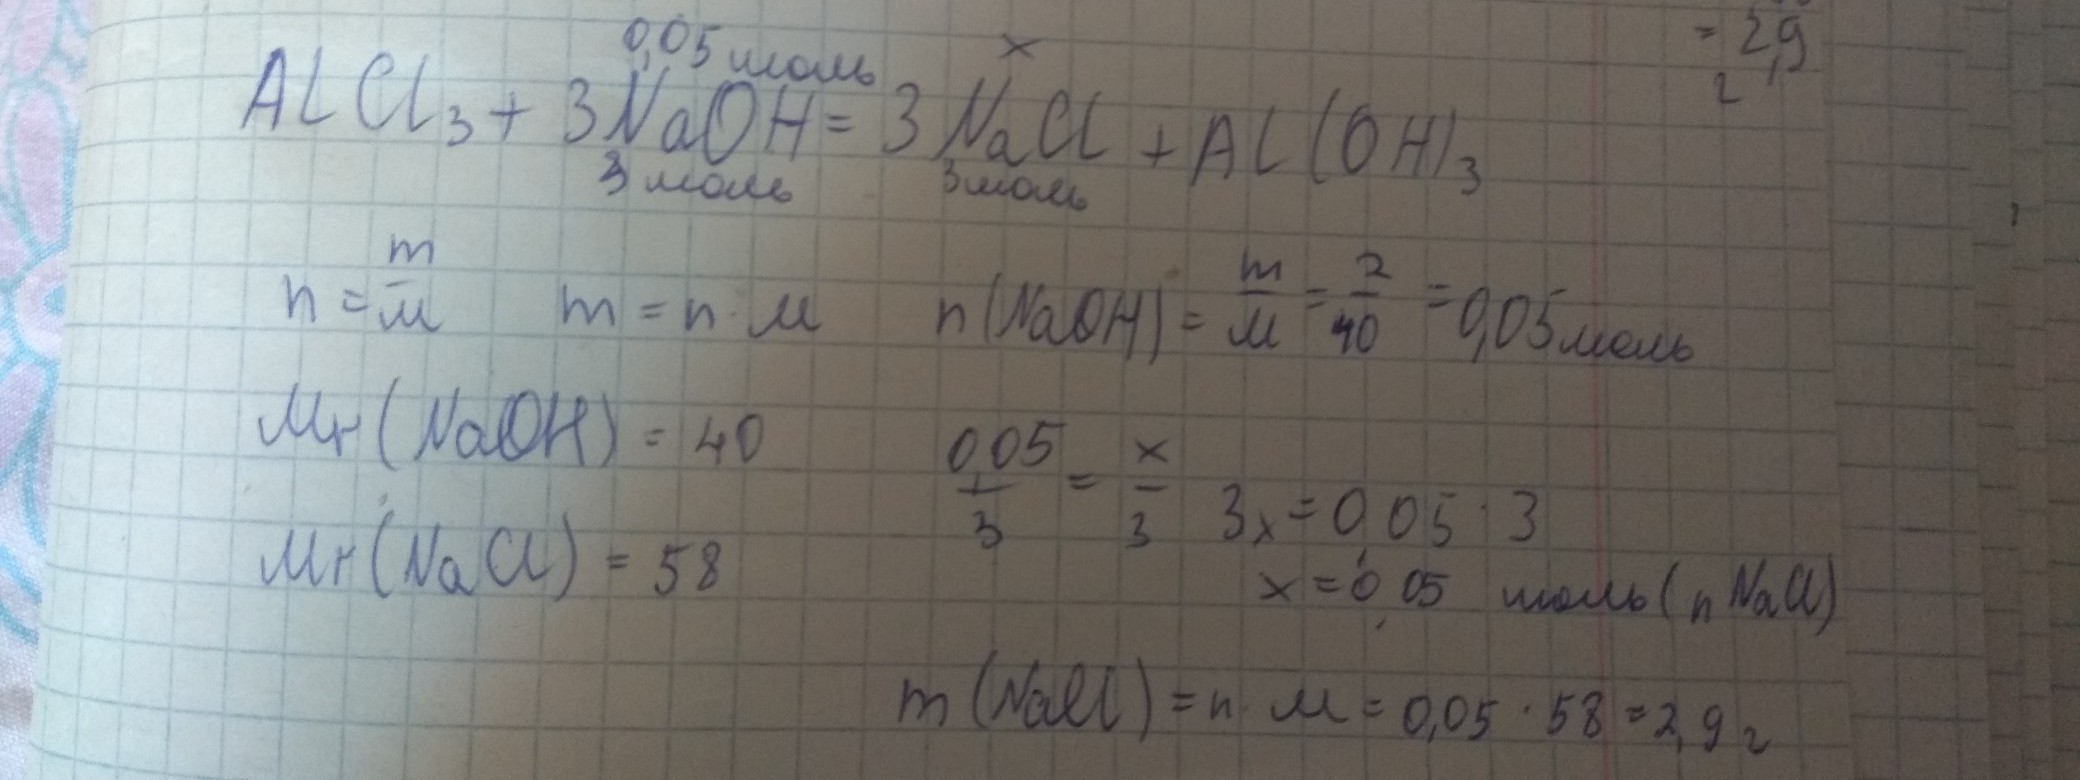 = 2,9
г
0,05 моль x
AlCl₃ + 3NaOH = 3NaCl + Al(OH)₃
3 моль 3 моль
n = m/M m = n · M n(NaOH) = m/M = 2/40 = 0,05 моль
Mr(NaOH) = 40
0,05/3 = x/3 3x = 0,05 · 3
Mr(NaCl) = 58
x = 0,05 моль (n NaCl)
m(NaCl) = n · M = 0,05 · 58 = 2,9 г